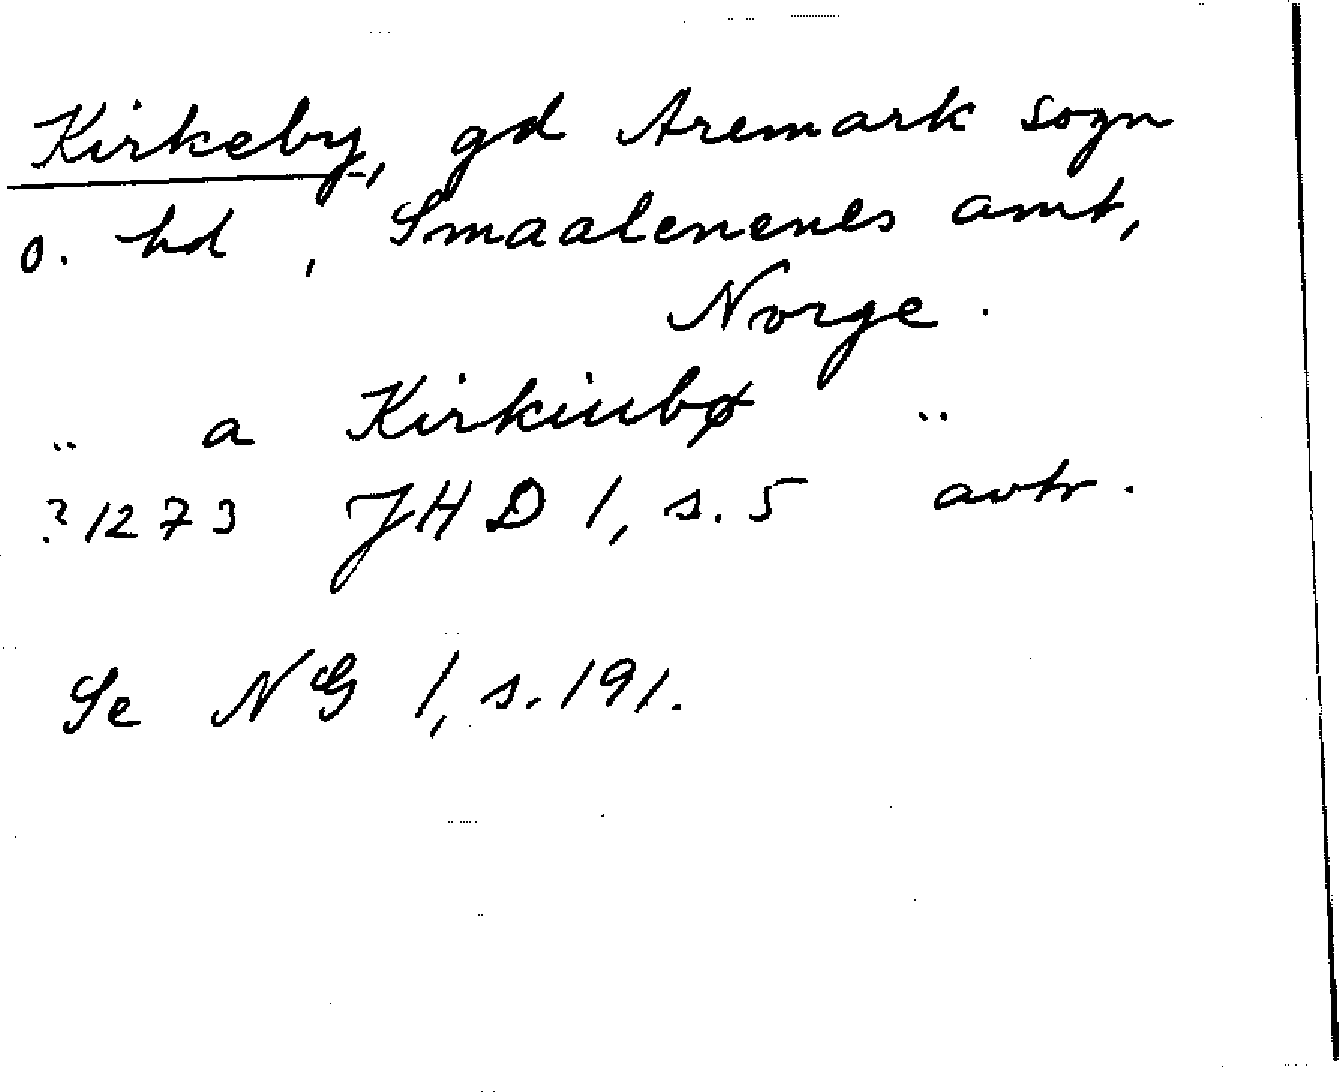 Kirkeby, gd Aremark sogn
o. hd, Smaalenenes amt,
Norge.
" a Kirkiubø "
?1273 JHD 1, s. 5 avtr.
Se NG 1, s. 191.